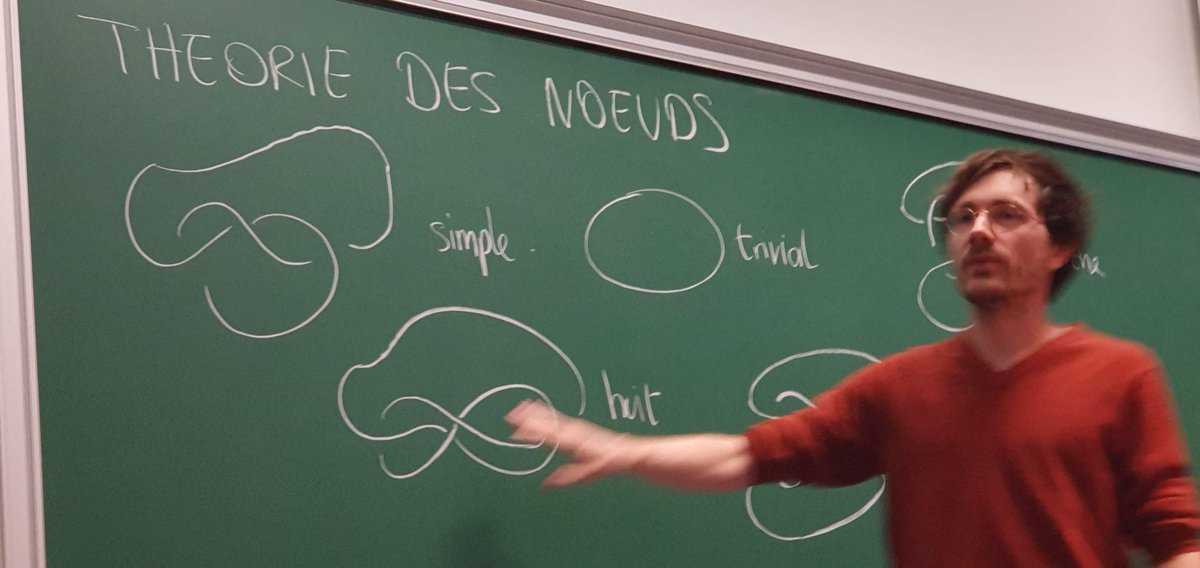 THEORIE DES NOEUDS
simple.
trivial
huit